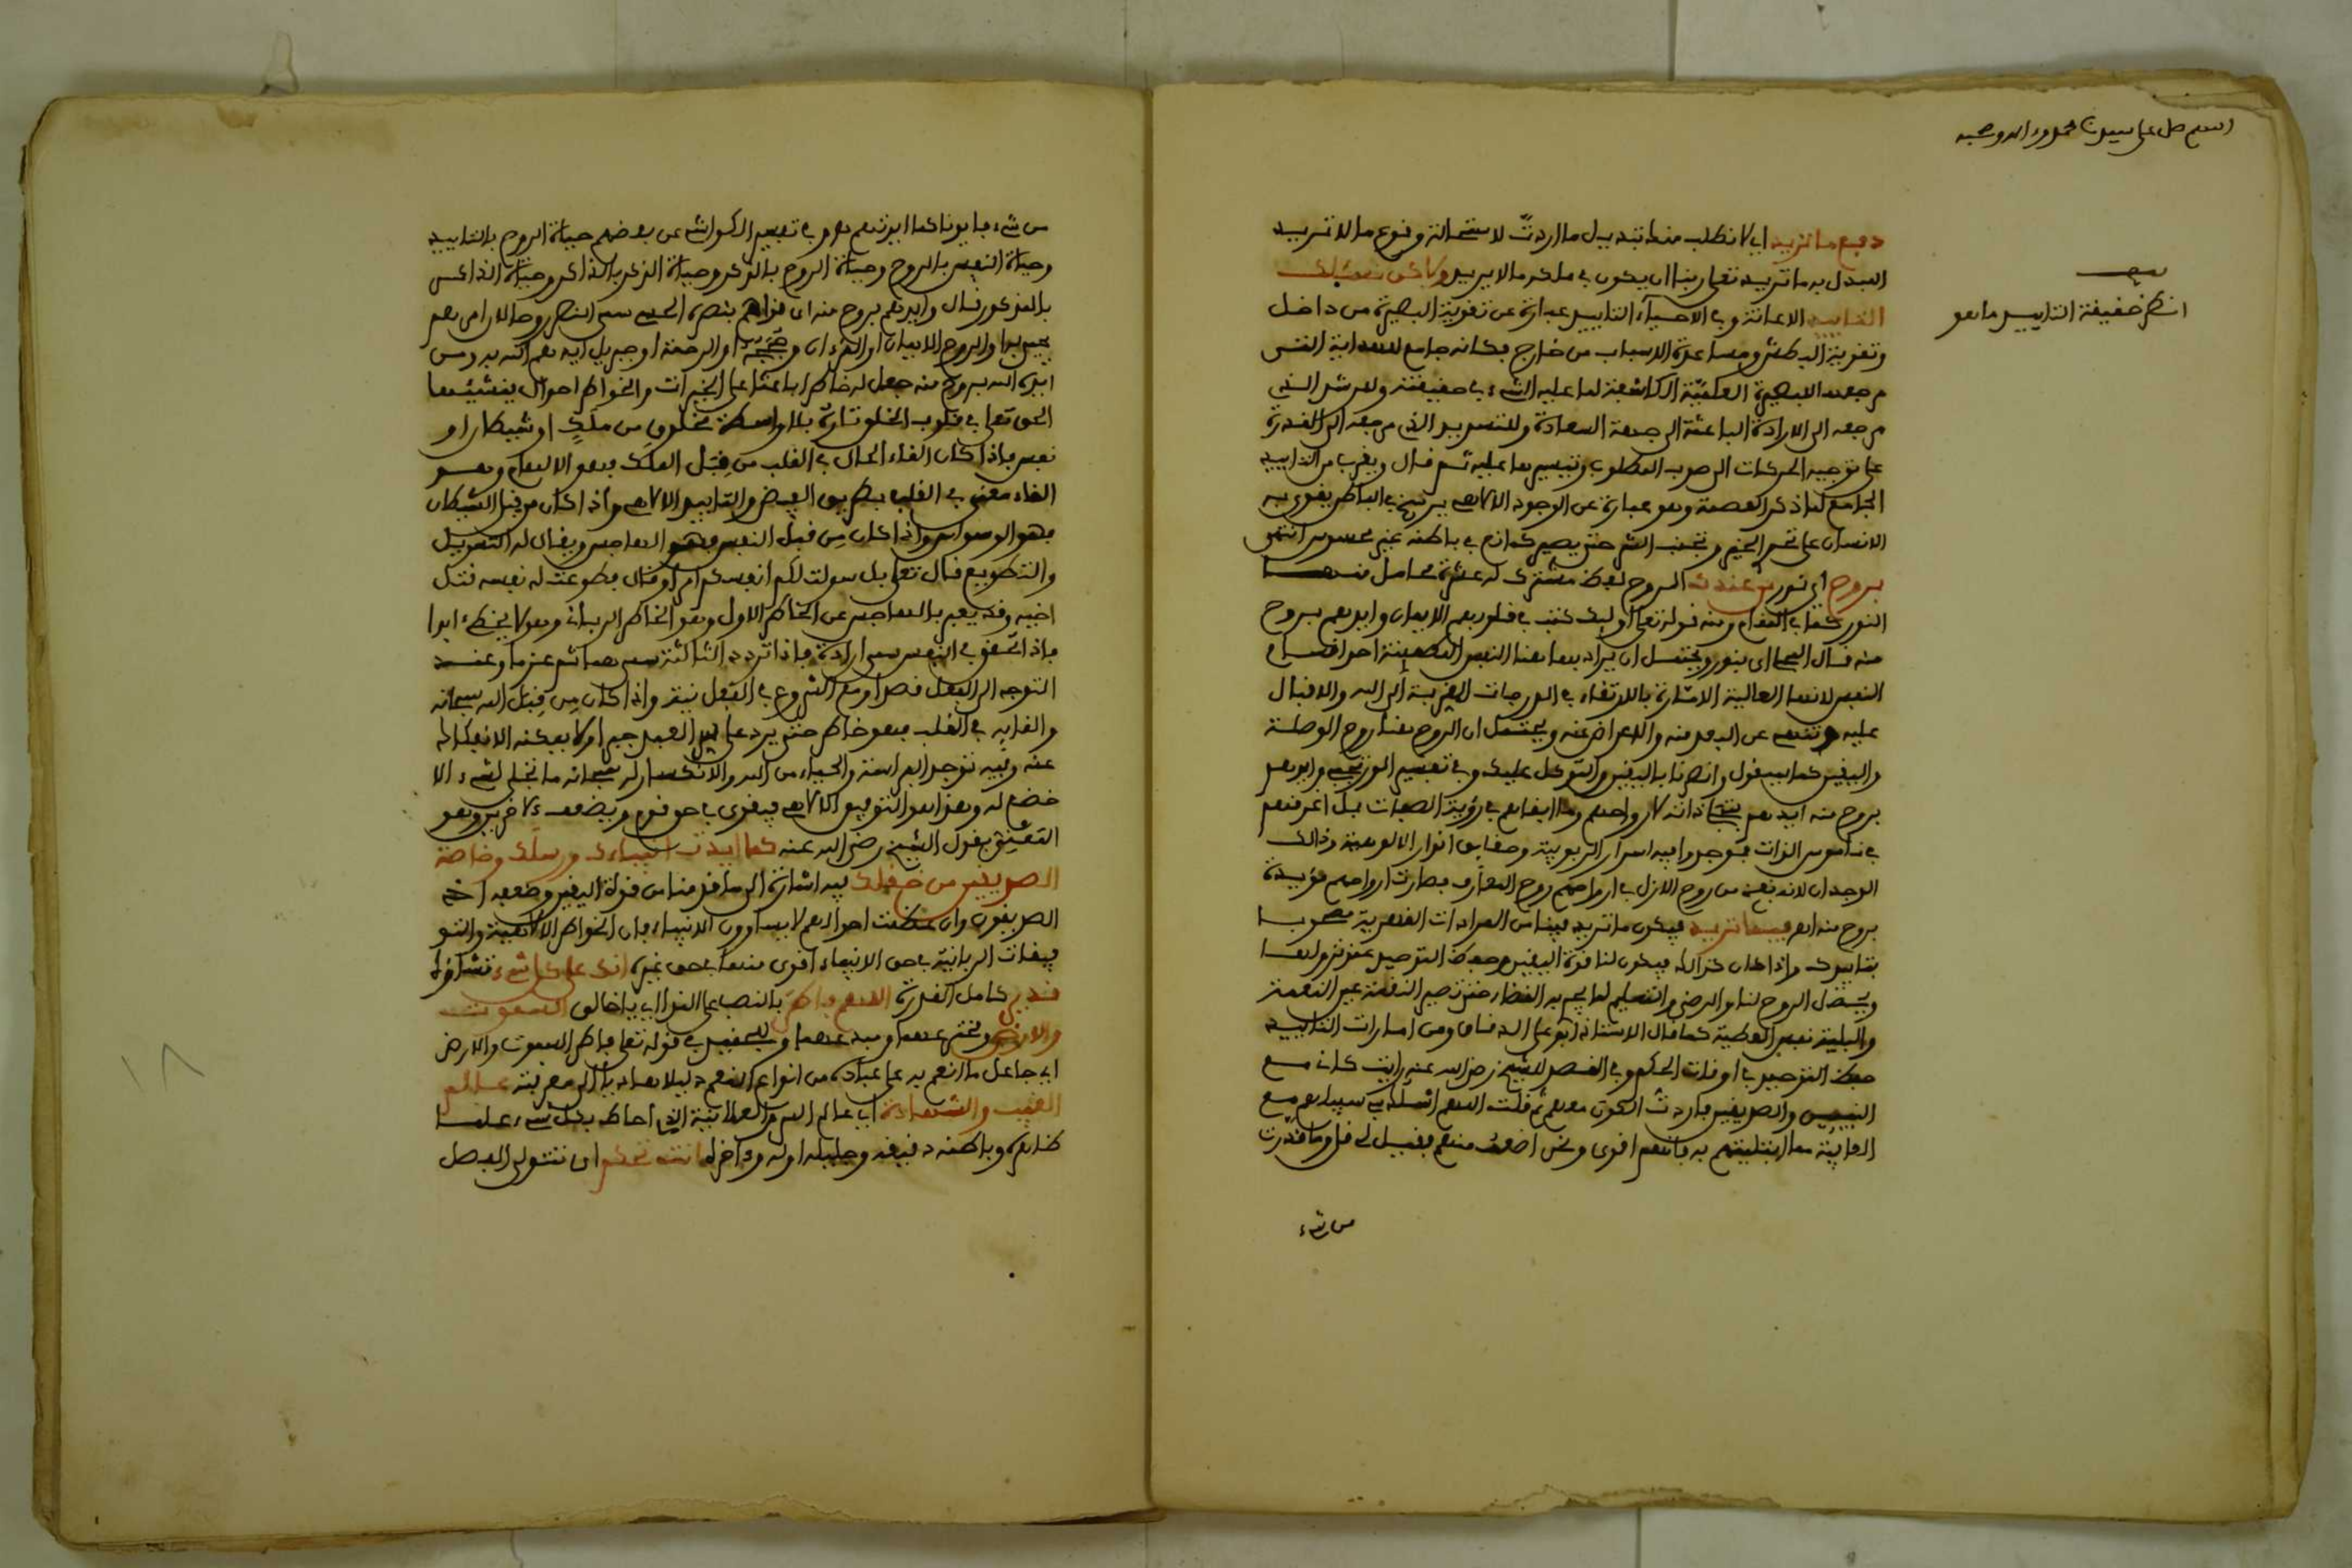 اللهم صل على سيدنا محمد وءاله وصحبه
قف
انظر حقيقة التاييد ما هو
دفع ما تريد اي لا نطلب منك تبديل ما اردت لاستحالة وقوع ما لا تريد
ولكن نسئلك
التاييد الاعانة وفي الاحياء التاييد عبارة عن تقوية البصيرة من داخل
وتقوية البطش ومساعدة الاسباب من خارج فكانه جامع للهداية التي
مرجعها للبصيرة العلمية الكاشفة لما عليه الشيء في حقيقته وللرشد الذي
مرجعه الى الارادة الباعثة الى جهة السعادة وللتسديد الذي مرجعه الى القدرة
على توجيه الحركات الى صوب المطلوب وتيسيرها عليه ثم قال ويقرب من التاييد
الجامع لما ذكر العصمة وهو عبارة عن الوجود الالهي يسنح في الباطن يقوى به
الانسان على تحري الخير وتجنب الشر حتى يصير كمانع في باطنه غير محسوس انتهى
بروح اي نور من عندك الروح لفظ مشترك له عشرة محامل منها
النور كما في المقام ومنه قوله تعلى اوليك كتب في قلوبهم الايمان وايدهم بروح
منه قال اي بنور ويحتمل ان يراد بها هنا النفس المطمينة احد اقسام
النفس لانها العالية الاشارة بالارتقاء في الدرجات القربية الى الله والاقبال
عليه وتنهى عن البعد منه والاعراض عنه ويحتمل ان الروح هنا روح الوصلة
واليقين كما سيقول وانصرنا باليقين والتوكل عليك وفي تفسير وايدهم
بروح منه ايدهم بتجلي ذاته لارواحهم وما ابقاهم في رؤية الصفات بل اغرقهم
في الذات فوجدوا فيه اسرار الربوبية وحقايق انوار الالوهية وذالك
الوجدان لانه نفخ من روح الازل في ارواحهم روح المعارف فصارت ارواحهم مؤيدة
بروح منه فيما تريد فيكون ما تريد فينا من المرادات القهرية مصحوبا
بتاييدك واذا كان كذالك فيكون لنا قوة اليقين وحفظ التوحيد عند نزولها
ويحصل الروح لنا والرضى والتسليم لما يجري به القضاء حتى تصير النقمة عين النعمة
والبلية نفس العطية كما قال الاستاذ ابو علي الدقاق ومن امارات التاييد
حفظ التوحيد في اوقات الحكم وفي القصد للشيخ رضي الله عنه رايت كاني مع
النبيين والصديقين فاردت الكون معهم ثم قلت اللهم اسلك بي سبيلهم مع
العافية مما ابتليتهم به فانهم اقوى ونحن اضعف منهم فقيل لي قل وما قدرت
من شيء
من شيء فايدنا كما ايدتهم وفي تفسير الكواشي عن بعضهم حياة الروح بالتاييد
وحياة النفس بالروح وحياة الروح بالذكر وحياة الذكر بالذاكر وحياة الذاكر
بالمذكور قال وايدهم بروح منه اي قواهم بنصره الحسي سمي النصر روحا لان امرهم
يحيى به او الروح الايمان او القرءان وحججه او الرحمة او جبريل ايدهم الله به ومن
ايده الله بروح منه جعل له خاطرا باعثا على الخيرات والخواطر احوال ينشئها
الحق تعلى في قلوب الخلق تارة بلا واسطة مخلوق من ملك او شيطان او
نفس فاذا كان القاء الحال في القلب من قبل الملك فهو الالهام وهو
القاء معنى في القلب بطريق الفيض والتاييد الالهي واذا كان من قبل الشيطان
فهو الوسواس واذا كان من قبل النفس فهو الهاجس ويقال له التسويل
والتطويع قال تعلى بل سولت لكم انفسكم امرا وقال فطوعت له نفسه قتل
اخيه وقد يعبر بالهاجس عن الخاطر الاول وهو الخاطر الرباني وهو لا يخطئ ابدا
فاذا تحقق في النفس سمي ارادة فاذا تردد الثالثة سمي هما ثم عزما وعند
التوجه الى الفعل قصدا ومع الشروع في الفعل نية واذا كان من قبل الله سبحانه
والقايه في القلب فهو خاطر حق يرد على العبد جبرا لا يمكنه الانفكاك
عنه وفيه توجد المراقبة والحياء من الله والانكسار له سبحانه ما تجلى لشيء الا
خضع له وهذا هو التوفيق الالهي فيقوى في حق قوم ويضعف في ءاخرين وهو
بقول الشيخ رضي الله عنه كما ايدت انبياءك ورسلك وخاصة
الصديقين من خلقك فيه اشارة الى ما قدمنا من قوة اليقين وضعفه اذ
الصديقون وان عظمت احوالهم لا يساوون الانبياء فان الخواطر الالهية والتو
فيقات الربانية في حق الانبياء اقوى منها في حق غيرهم انك على كل شيء تشاؤه
قدير كامل القدرة اللهم فاطر بالنصب على الندا اي يا خالق السموت
والارض ومخترعهما ومبدعهما في قوله تعلى فاطر السموت والارض
اي جاعل ما انعم به على عباده من انواع النعم دليلا هاديا الى معرفته عالم
الغيب والشهادة اي عالم السر والعلانية الذي احاط بكل شيء علما
ظاهره وباطنه دقيقه وجليله اوله وءاخره انت تحكم اي تتولى الفصل
١٨